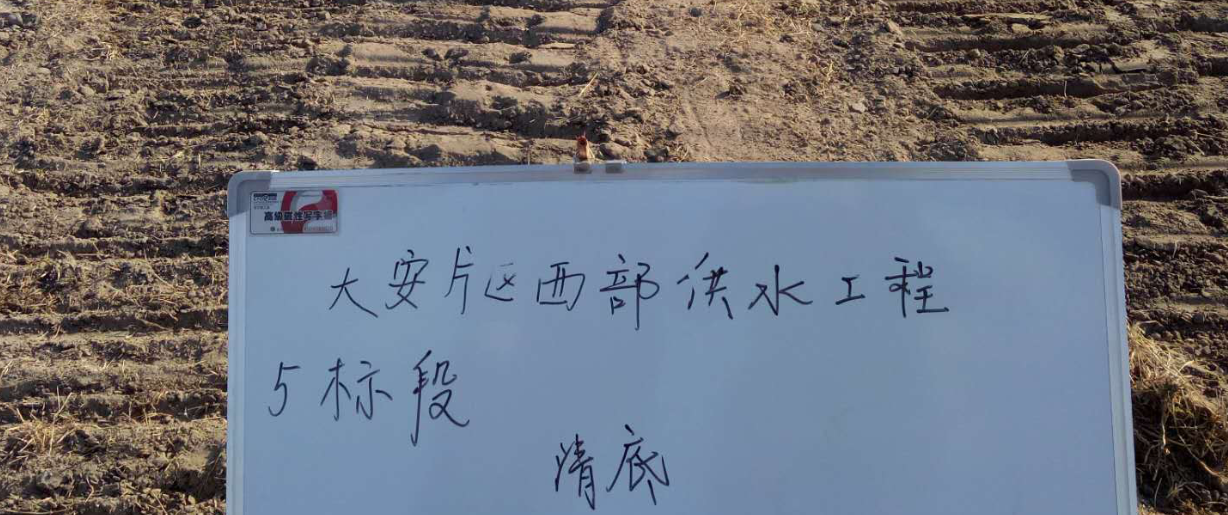 高级磁性白板
大安片区西部供水工程
5标段
清底